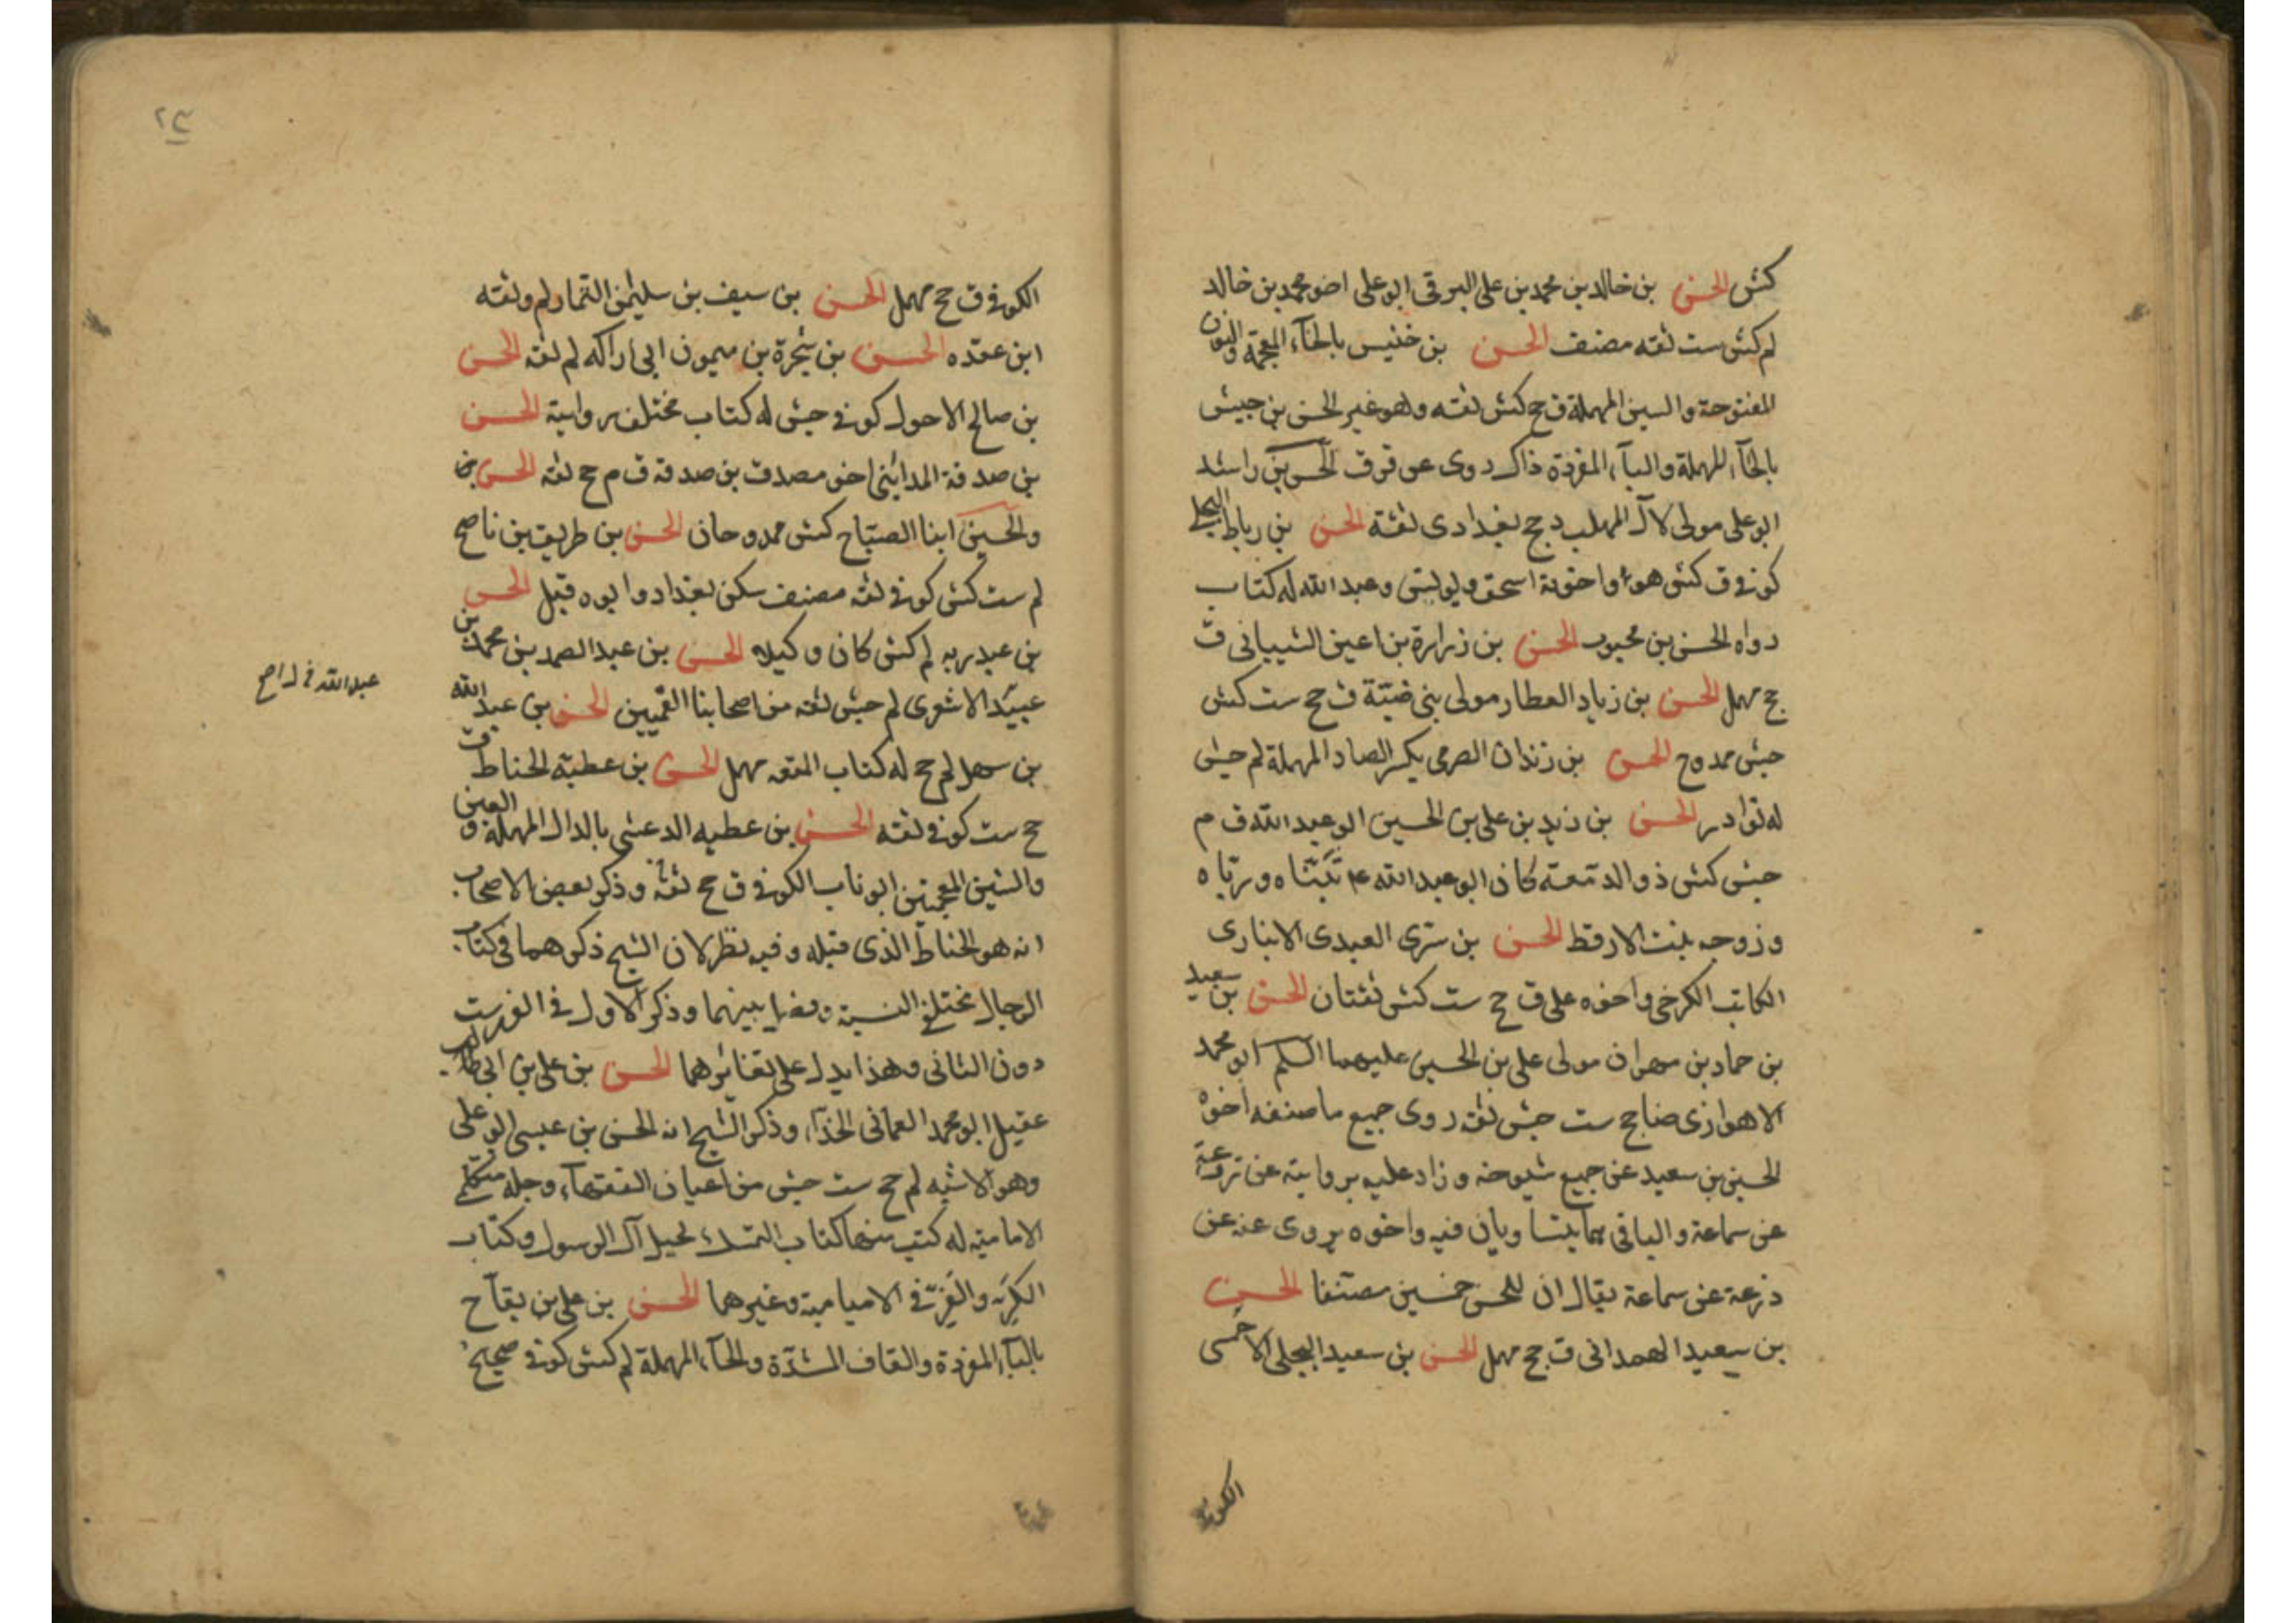 كش الحسن بن خالد بن محمد بن على البرقى ابو على اخو محمد بن خالد
لم كش ست ثقه مصنف الحسن بن خنيس بالخآء المعجمة والنون
المفتوحة والسين المهملة ق جخ كش ثقه وهو غير الحسن بن حبيش
بالحآء المهملة والبآء المفردة ذاك روى عن قرق الحسن بن راشد
ابو على مولى لآل المهلب د جخ بغدادى ثقة الحسن بن رباط البجلى
كوفى ق كش هو واخوته اسحق ويونس وعبد الله له كتاب
رواه الحسن بن محبوب الحسن بن زرارة بن اعين الشيبانى ق
جخ مهمل الحسن بن زياد العطار مولى بنى ضبّة ق جخ ست كش
جش ممدوح الحسن بن الصرمى بكسر الصاد المهملة لم جش
له نوادر الحسن بن زيد بن على بن الحسين ابو عبد الله ق م
جش كش ذو الدمعة كان ابو عبد الله ع تبنّاه وربّاه
وزوجه بنت الارقط الحسن بن سرى العبدى الانبارى
الكاتب الكرخى واخوه على ق جخ ست كش ثقتان الحسن بن سعيد
بن حماد بن مهران مولى على بن الحسين عليهما السلم ابو محمد
الاهوازى ضا جخ ست جش ثقه روى جميع ما صنفه اخوه
الحسين بن سعيد عن جميع شيوخه وزاد عليه بروايته عن زرعة
عن سماعة والباقى فيه واخوه يروى عنه عن
زرعة عن سماعة يقال ان للحسن خمسين مصنفا الحسن
بن سعيد الهمدانى ق جخ مهمل الحسن بن سعيد البجلى الاحمسى
الكوفى
٢٣
الكوفى ق جخ مهمل الحسن بن سيف بن سليمن التمار لم وثقه
ابن عقده الحسن بن شجرة بن ميمون ابى اراكه لم ثقه الحسن
بن صالح الاحول كوفى جش له كتاب مختلف روايته الحسن
بن صدقة المداينى اخو مصدق بن صدقة ق م جخ ثقه الحسن بن
والحسين ابنا الصبّاح كش ممدوحان الحسن بن طريف بن ناصح
لم ست كش كوفى ثقه مصنف سكن بغداد وابوه قبل الحسن
بن عبد ربه لم كش كان وكيله الحسن بن عبد الصمد بن محمد بن
عبيد الاشعرى لم جش ثقه من اصحابنا القميين الحسن بن عبد الله
بن سهل لم جخ له كتاب المتعه مهمل الحسن بن عطية الحناط ق
عبد الله
جخ ست كوفى ثقه الحسن بن عطيه الدغشى بالدال المهملة والعين
والشين المعجمتين ابو ناب الكوفى ق جخ ثقه وذكر بعض الاصحاب
انه هو الحناط الذى قبله وفيه نظر لان الشيخ ذكرهما فى كتاب
الرجال مختلفى النسبة وفصل بينهما وذكر الاول فى الفهرست
دون الثانى وهذا يدل على تغائرهما الحسن بن على بن ابى
عقيل ابو محمد العمانى الحذآء وذكر الشيخ انه الحسن بن عيسى ابو على
وهو الاشبه لم جخ ست جش من اعيان الفقهآء وجلة متكلمى
الامامية له كتب منها كتاب التمسك بحبل آل الرسول وكتاب
الكر والفر فى الامامية وغيرهما الحسن بن على بن بقّاح
بالبآء المفردة والقاف المشدّة والحآء المهملة لم كش كوفى صحيح